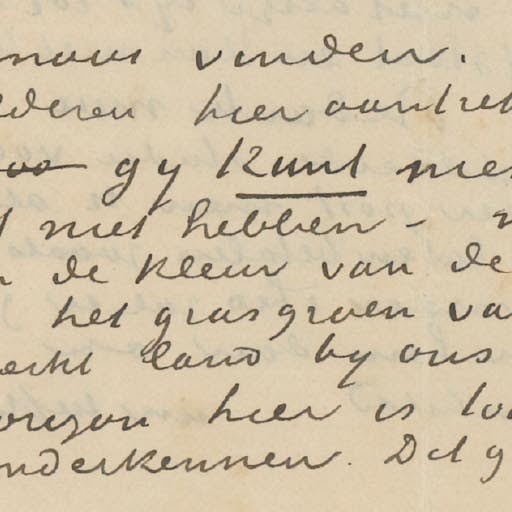 mooi vinden.
deren hier aantref
gy kunt nie
t niet hebben –
de kleur van de
het grasgroen va
echt land by ons
orizon hier is
onderkennen. Dit g